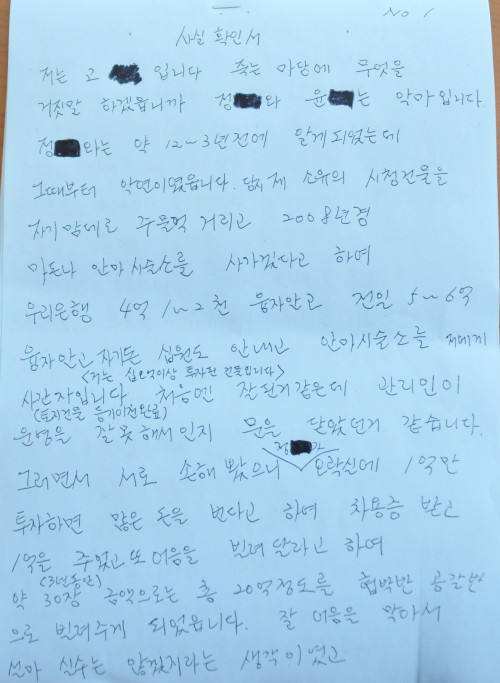 No 1
사실 확인서
저는 고 입니다 죽는 마당에 무엇을
거짓말 하겠읍니까 정 와 윤 는 악마입니다
정 와는 약 12~3년전에 알게되었는데
그때부터 악연이였읍니다. 당시 제 소유의 시청건물을
자기 맘데로 주물럭 거리고 2008년경
마돈나 안마시술소를 사가겠다고 하여
우리은행 4억 1~2천 융자안고 전일 5~6억
융자안고 자기돈 십원도 안내고 안마시술소를 저에게
<저는 십오억이상 투자된 건물입니다>
사간자입니다. 처음엔 잘된거같은데 관리인이
(토지건물 등기이전완료)
운영을 잘못해서인지 문을 닫았던거 같습니다.
정 가
그러면서 서로 손해봤으니 오락실에 1억만
투자하면 많은 돈을 번다고 하여 차용증 받고
1억을 주었고 또 어음을 빌려달라고 하여
(3년동안)
약 30장 금액으로는 총 20억정도를 협박반 공갈반
으로 빌려주게 되었읍니다. 잘 어음을 막아서
설마 실수는 않겠지라는 생각이였고